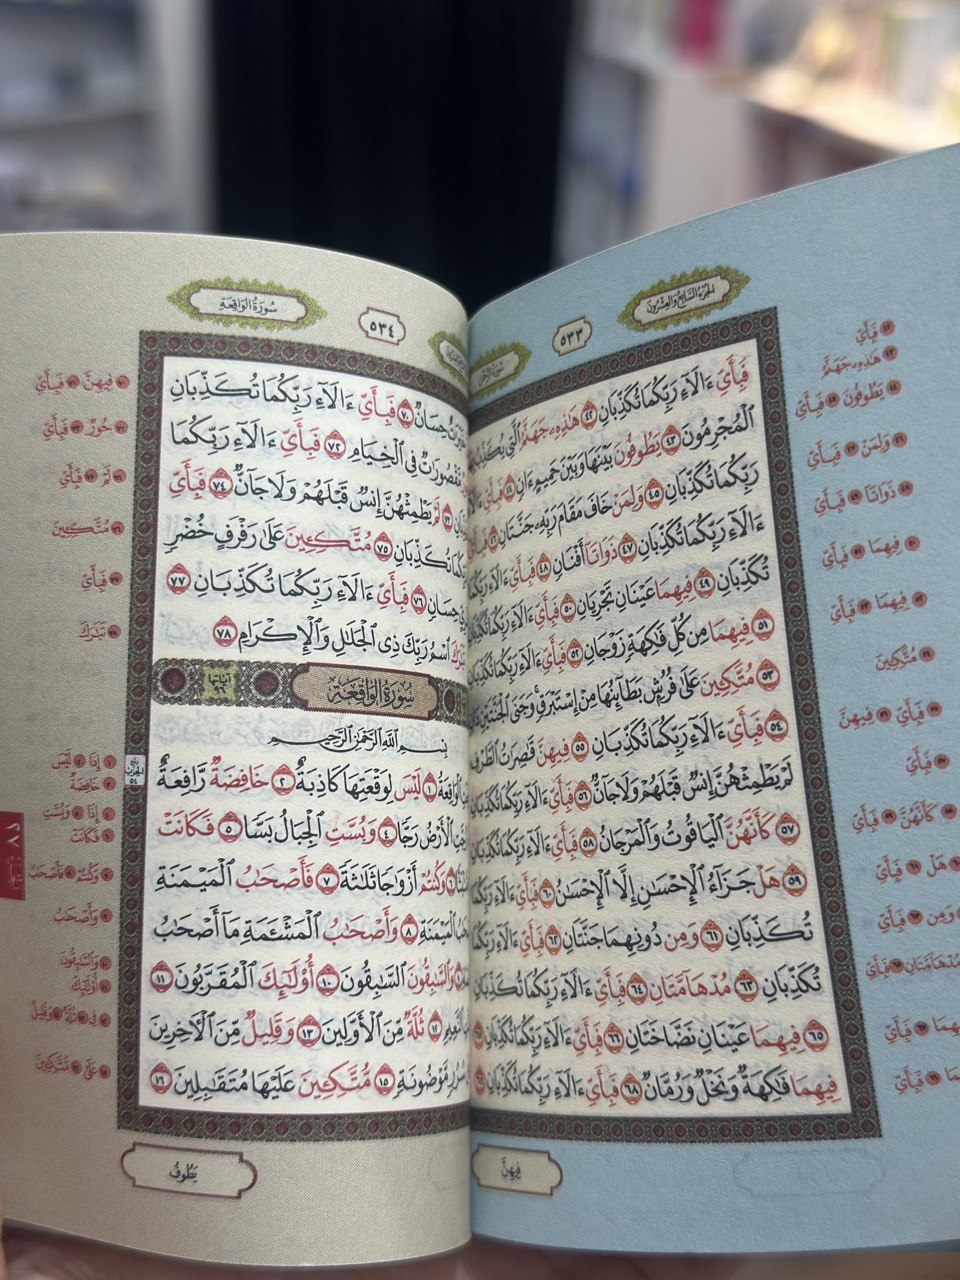 الجزء السابع والعشرون
٥٣٣
سورة الرحمن
فَبِأَيِّ ءَالَآءِ رَبِّكُمَا تُكَذِّبَانِ ٤٢ هَٰذِهِۦ جَهَنَّمُ ٱلَّتِي يُكَذِّبُ
ٱلْمُجْرِمُونَ ٤٣ يَطُوفُونَ بَيْنَهَا وَبَيْنَ حَمِيمٍ ءَانٍ ٤٤ فَبِأَيِّ
رَبِّكُمَا تُكَذِّبَانِ ٤٥ وَلِمَنْ خَافَ مَقَامَ رَبِّهِۦ جَنَّتَانِ ٤٦ فَبِأَيِّ
ءَالَآءِ رَبِّكُمَا تُكَذِّبَانِ ٤٧ ذَوَاتَآ أَفْنَانٍ ٤٨ فَبِأَيِّ ءَالَآءِ رَبِّكُمَا
تُكَذِّبَانِ ٤٩ فِيهِمَا عَيْنَانِ تَجْرِيَانِ ٥٠ فَبِأَيِّ ءَالَآءِ رَبِّكُمَا تُكَذِّبَانِ
٥١ فِيهِمَا مِن كُلِّ فَٰكِهَةٍ زَوْجَانِ ٥٢ فَبِأَيِّ ءَالَآءِ رَبِّكُمَا تُكَذِّبَانِ
٥٣ مُتَّكِـِٔينَ عَلَىٰ فُرُشٍۭ بَطَآئِنُهَا مِنْ إِسْتَبْرَقٍ وَجَنَى ٱلْجَنَّتَيْنِ
٥٤ فَبِأَيِّ ءَالَآءِ رَبِّكُمَا تُكَذِّبَانِ ٥٥ فِيهِنَّ قَٰصِرَٰتُ ٱلطَّرْفِ
لَمْ يَطْمِثْهُنَّ إِنسٌ قَبْلَهُمْ وَلَا جَآنٌّ ٥٦ فَبِأَيِّ ءَالَآءِ رَبِّكُمَا تُكَذِّبَانِ
٥٧ كَأَنَّهُنَّ ٱلْيَاقُوتُ وَٱلْمَرْجَانُ ٥٨ فَبِأَيِّ ءَالَآءِ رَبِّكُمَا تُكَذِّبَانِ
٥٩ هَلْ جَزَآءُ ٱلْإِحْسَٰنِ إِلَّا ٱلْإِحْسَٰنُ ٦٠ فَبِأَيِّ ءَالَآءِ رَبِّكُمَا
تُكَذِّبَانِ ٦١ وَمِن دُونِهِمَا جَنَّتَانِ ٦٢ فَبِأَيِّ ءَالَآءِ رَبِّكُمَا
تُكَذِّبَانِ ٦٣ مُدْهَآمَّتَانِ ٦٤ فَبِأَيِّ ءَالَآءِ رَبِّكُمَا تُكَذِّبَانِ
٦٥ فِيهِمَا عَيْنَانِ نَضَّاخَتَانِ ٦٦ فَبِأَيِّ ءَالَآءِ رَبِّكُمَا تُكَذِّبَانِ
فِيهِمَا فَٰكِهَةٌ وَنَخْلٌ وَرُمَّانٌ ٦٨ فَبِأَيِّ ءَالَآءِ رَبِّكُمَا تُكَذِّبَانِ
فِيهِنَّ
٤٢ فَبِأَيِّ
٤٣ هَٰذِهِۦ جَهَنَّمُ
٤٤ يَطُوفُونَ ٤٥ فَبِأَيِّ
٤٦ وَلِمَنْ ٤٧ فَبِأَيِّ
٤٨ ذَوَاتَآ ٤٩ فَبِأَيِّ
٥٠ فِيهِمَا ٥١ فَبِأَيِّ
٥٢ فِيهِمَا ٥٣ فَبِأَيِّ
٥٤ مُتَّكِـِٔينَ
٥٥ فَبِأَيِّ ٥٦ فِيهِنَّ
٥٧ فَبِأَيِّ
٥٨ كَأَنَّهُنَّ ٥٩ فَبِأَيِّ
هَلْ ٦١ فَبِأَيِّ
وَمِن ٦٣ فَبِأَيِّ
مُدْهَآمَّتَانِ ٦٥ فَبِأَيِّ
فَبِأَيِّ
فَبِأَيِّ
سورة الواقعة
٥٣٤
حِسَانٌ ٧٠ فَبِأَيِّ ءَالَآءِ رَبِّكُمَا تُكَذِّبَانِ
مَّقْصُورَٰتٌ فِي ٱلْخِيَامِ ٧٢ فَبِأَيِّ ءَالَآءِ رَبِّكُمَا
٧٣ لَمْ يَطْمِثْهُنَّ إِنسٌ قَبْلَهُمْ وَلَا جَآنٌّ ٧٤ فَبِأَيِّ
تُكَذِّبَانِ ٧٥ مُتَّكِـِٔينَ عَلَىٰ رَفْرَفٍ خُضْرٍ
حِسَانٍ ٧٦ فَبِأَيِّ ءَالَآءِ رَبِّكُمَا تُكَذِّبَانِ ٧٧
ٱسْمُ رَبِّكَ ذِي ٱلْجَلَٰلِ وَٱلْإِكْرَامِ ٧٨
سورة الواقعة
آياتها ٩٦
بِسْمِ ٱللَّهِ ٱلرَّحْمَٰنِ ٱلرَّحِيمِ
ٱلْوَاقِعَةُ ١ لَيْسَ لِوَقْعَتِهَا كَاذِبَةٌ ٢ خَافِضَةٌ رَّافِعَةٌ
ٱلْأَرْضُ رَجًّا ٤ وَبُسَّتِ ٱلْجِبَالُ بَسًّا ٥ فَكَانَتْ
٦ وَكُنتُمْ أَزْوَٰجًا ثَلَٰثَةً ٧ فَأَصْحَٰبُ ٱلْمَيْمَنَةِ
ٱلْمَيْمَنَةِ ٨ وَأَصْحَٰبُ ٱلْمَشْـَٔمَةِ مَآ أَصْحَٰبُ
وَٱلسَّٰبِقُونَ ٱلسَّٰبِقُونَ ١٠ أُو۟لَٰٓئِكَ ٱلْمُقَرَّبُونَ ١١
ٱلنَّعِيمِ ١٢ ثُلَّةٌ مِّنَ ٱلْأَوَّلِينَ ١٣ وَقَلِيلٌ مِّنَ ٱلْـَٔاخِرِينَ
سُرُرٍ مَّوْضُونَةٍ ١٥ مُّتَّكِـِٔينَ عَلَيْهَا مُتَقَٰبِلِينَ ١٦
يَطُوفُ
٧٠ فِيهِنَّ ٧١ فَبِأَيِّ
٧٢ حُورٌ ٧٣ فَبِأَيِّ
٧٤ لَمْ ٧٥ فَبِأَيِّ
٧٦ مُتَّكِـِٔينَ
٧٧ فَبِأَيِّ
٧٨ تَبَٰرَكَ
ربع الحزب ٥٤
١ إِذَا ٢ لَيْسَ
٣ خَافِضَةٌ
٤ إِذَا ٥ وَبُسَّتِ
٦ فَكَانَتْ
٧ وَكُنتُمْ ٨ فَأَصْحَٰبُ
٩ وَأَصْحَٰبُ
١٠ وَٱلسَّٰبِقُونَ
١١ أُو۟لَٰٓئِكَ
١٢ فِي ١٣ ثُلَّةٌ ١٤ وَقَلِيلٌ
١٥ عَلَىٰ ١٦ مُّتَّكِـِٔينَ
٢٧